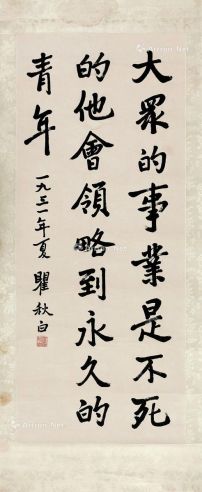 大眾的事業是不死
的他會領略到永久的
青年
一九三一年夏 瞿秋白